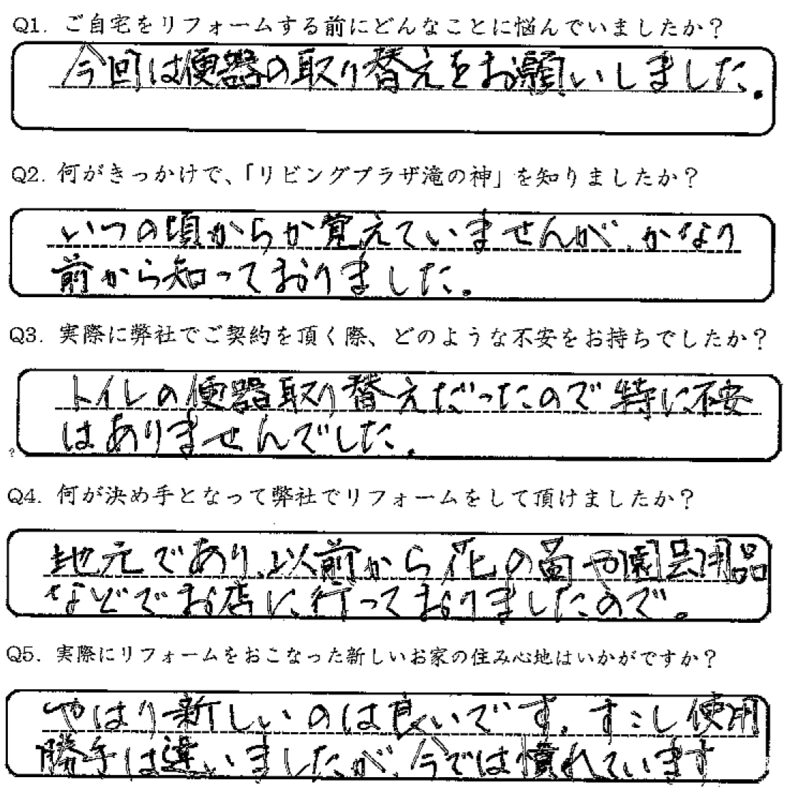 Q1. ご自宅をリフォームする前にどんなことに悩んでいましたか？
今回は便器の取り替えをお願いしました.
Q2. 何がきっかけで、「リビングプラザ滝の神」を知りましたか？
いつの頃からか覚えていませんが、かなり
前から知っておりました.
Q3. 実際に弊社でご契約を頂く際、どのような不安をお持ちでしたか？
トイレの便器取り替えだったので特に不安
はありませんでした.
Q4. 何が決め手となって弊社でリフォームをして頂けましたか？
地元であり、以前から花の苗や園芸用品
などでお店に行っておりましたので。
Q5. 実際にリフォームをおこなった新しいお家の住み心地はいかがですか？
やはり新しいのは良いです. すこし使用
勝手は違いましたが、今では慣れています